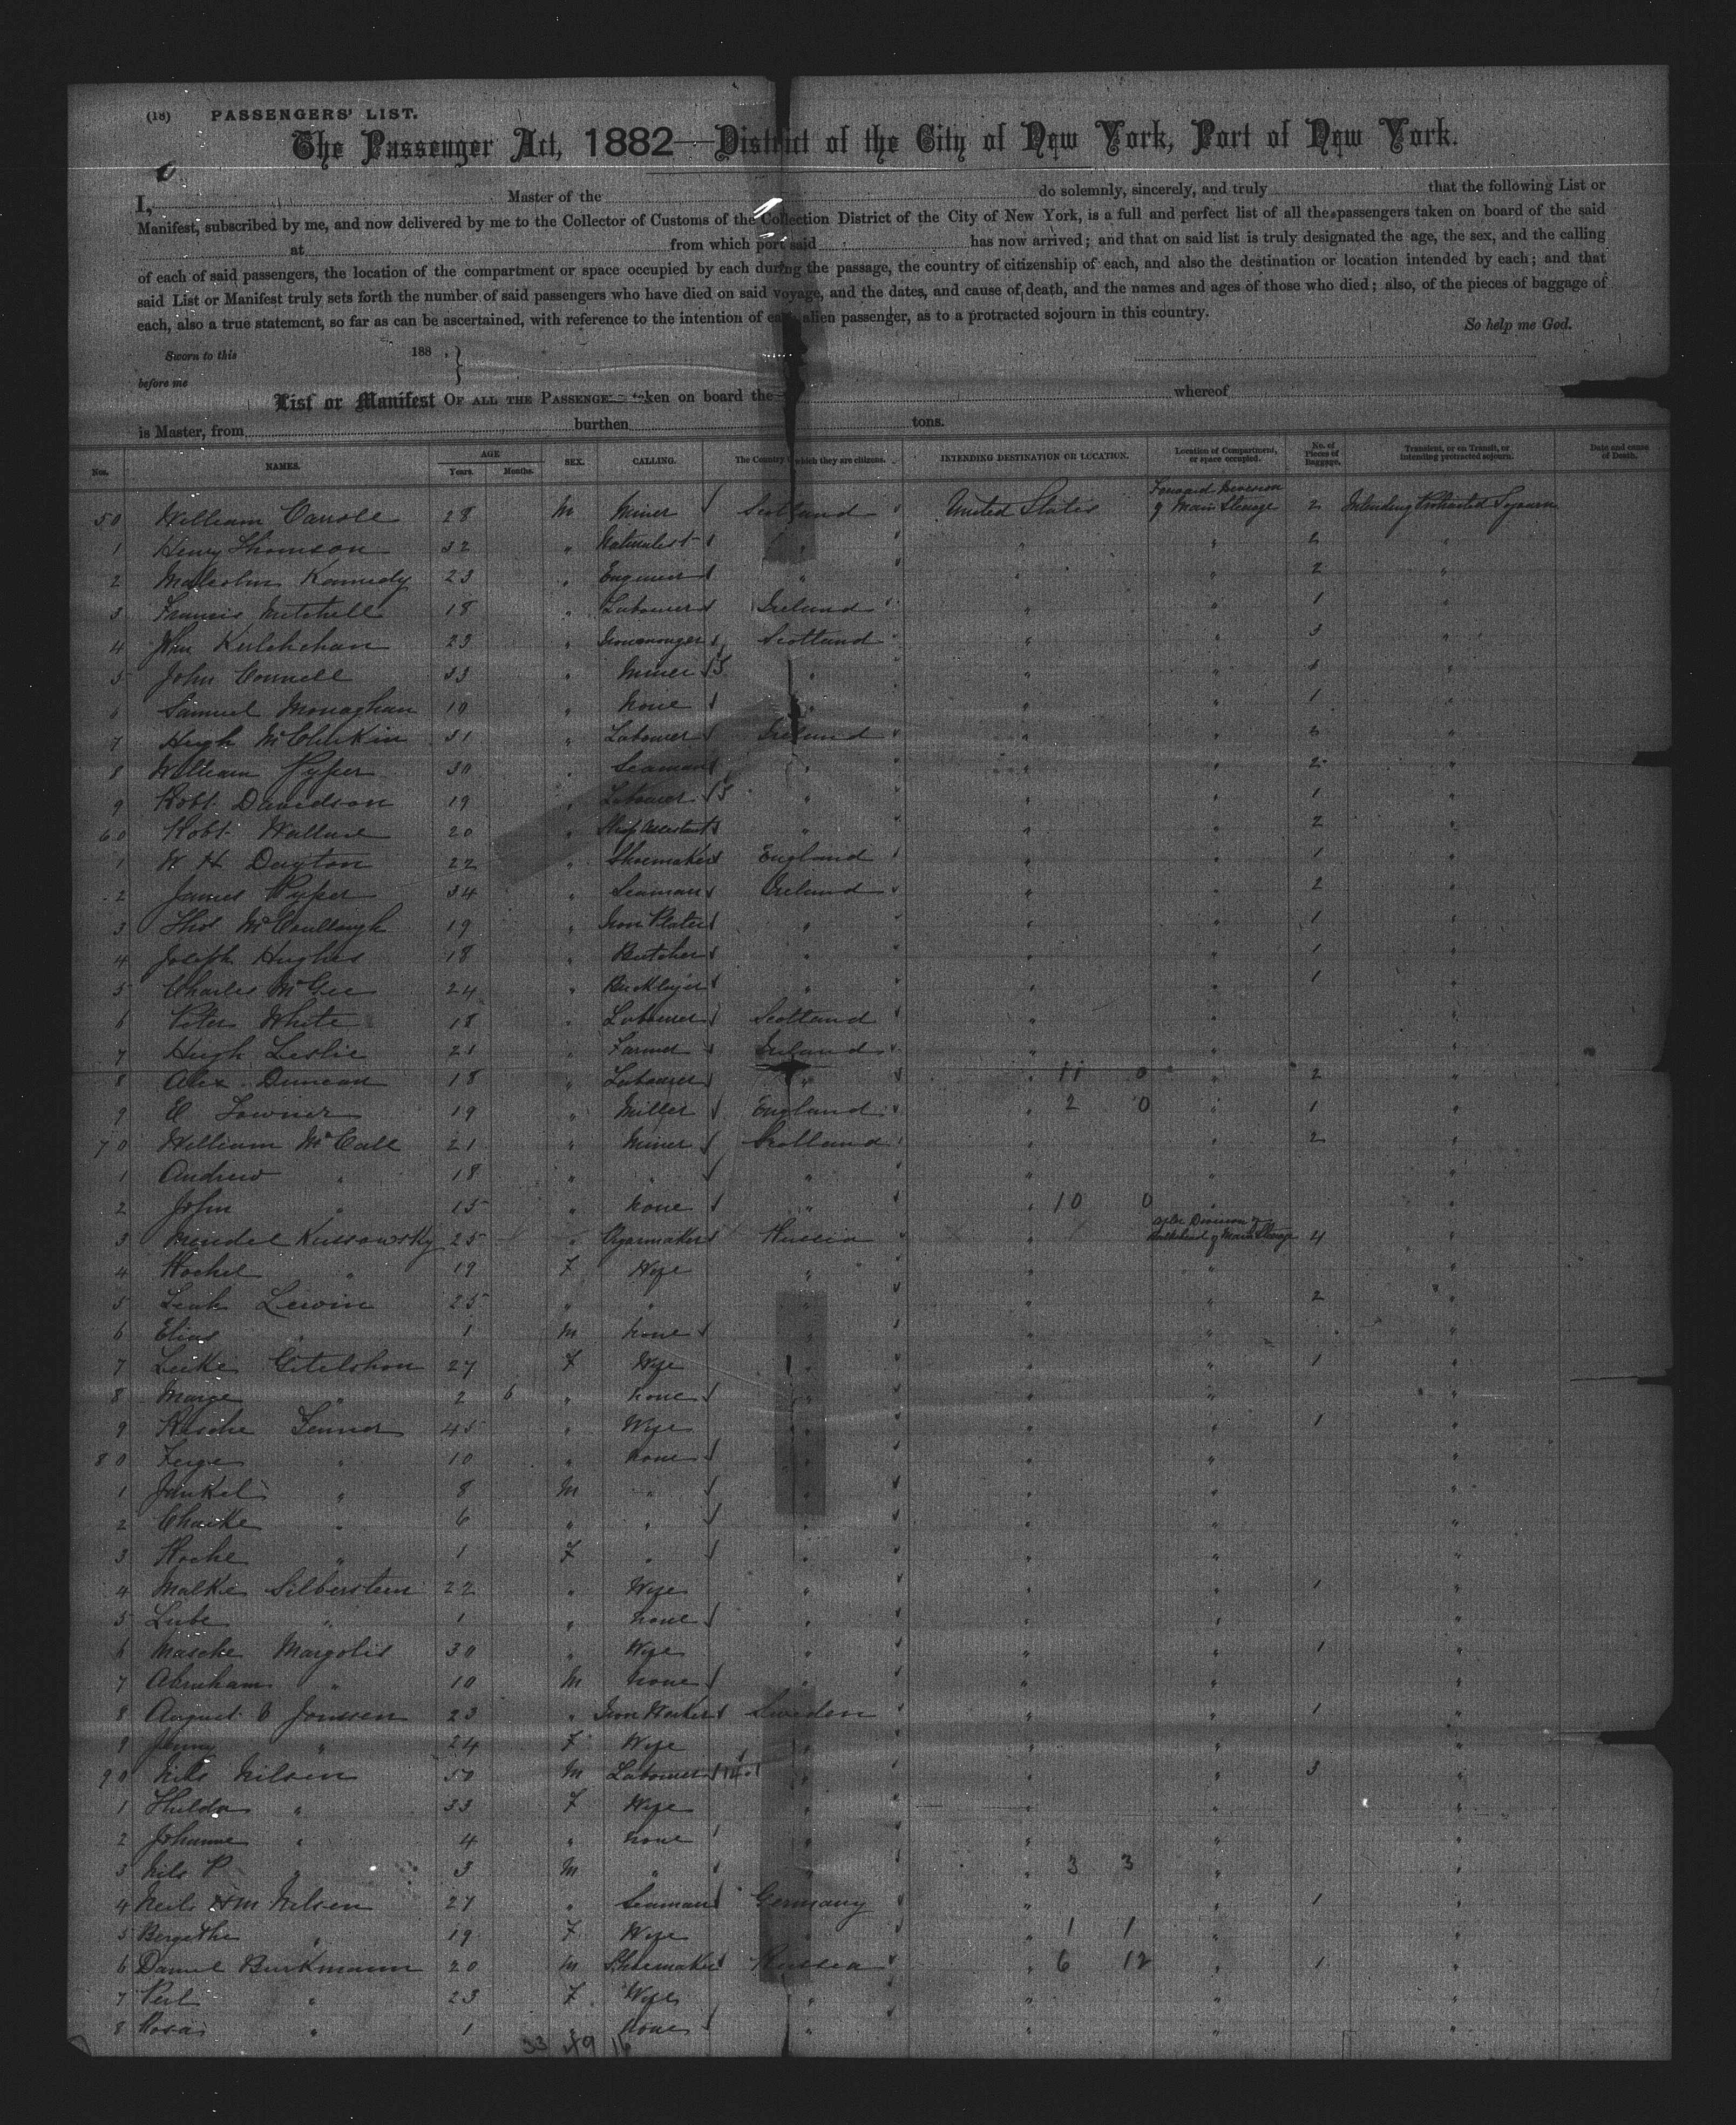 (18) PASSENGERS' LIST.
The Passenger Act, 1882—District of the City of New York, Port of New York.
I, Master of the do solemnly, sincerely, and truly that the following List or
Manifest, subscribed by me, and now delivered by me to the Collector of Customs of the Collection District of the City of New York, is a full and perfect list of all the passengers taken on board of the said
at from which port said has now arrived; and that on said list is truly designated the age, the sex, and the calling
of each of said passengers, the location of the compartment or space occupied by each during the passage, the country of citizenship of each, and also the destination or location intended by each; and that
said List or Manifest truly sets forth the number of said passengers who have died on said voyage, and the dates, and cause of death, and the names and ages of those who died; also, of the pieces of baggage of
each, also a true statement, so far as can be ascertained, with reference to the intention of each alien passenger, as to a protracted sojourn in this country.
So help me God.
Sworn to this 188 .
before me
List or Manifest OF ALL THE PASSENGE taken on board the whereof
is Master, from burthen tons.
Nos. NAMES. AGE Years. Months. SEX. CALLING. The Country which they are citizens. INTENDING DESTINATION OR LOCATION. Location of Compartment, or space occupied. No. of Pieces of Baggage. Transient, or en Transit, or intending protracted sojourn. Date and cause of Death.
50 William Carroll 28 M Miner Scotland United States Forward Division of Main Steerage 2 Intending Protracted Sojourn
1 Henry Thomson 32 " Naturalist " " " 2 "
2 Malcolm Kennedy 23 " Engineer " " " 2 "
3 Francis Mitchell 18 " Labourer Ireland " " 1 "
4 John 23 " Ironmonger Scotland " " 3 "
5 John Connell 33 " Miner " " " "
6 Samuel Monaghan 10 " None " " " 1 "
7 Hugh 31 " Labourer Ireland " " 3 "
8 William Pyper 30 " Seaman " " " 2 "
9 Robt. Davidson 19 " Labourer " " " 1 "
60 Robt. Wallace 20 " Shop Assistant " " " 2 "
1 W H Dayton 22 " Shoemaker England " " 1 "
2 James Pyper 34 " Seaman Ireland " " 2 "
3 Thos McCoullough 19 " Iron Plater " " " 1 "
4 Joseph Hughes 18 " Butcher " " " 1 "
5 Charles McGee 24 " Bricklayer " " " 1 "
6 Peter White 18 " Labourer Scotland " " "
7 Hugh Leslie 21 " Farmer Ireland " " "
8 Alex Duncan 18 " Labourer " " 11 0 " 2 "
9 E 19 " Miller England " 2 0 " 1 "
70 William McCall 21 " Miner Scotland " " 2 "
1 Andrew " 18 " " " " " "
2 John " 15 " None " " 10 0 " "
3 Mendel Kussowsky 25 " Cigarmaker Russia " After Division of Bulkhead of Main Steerage 4 "
4 Rochel " 19 F Wife " " " "
5 Leah Lewin 25 " " " " " 2 "
6 Elias " 1 M None " " " "
7 Leike Gitelshon 27 F Wife " " " 1 "
8 Marge " 2 6 " None " " " "
9 Rasche 45 " Wife " " " 1 "
80 Feige " 10 " None " " " "
1 Jankel " 8 M " " " " "
2 Chaike " 6 " " " " " "
3 Roche " 1 F " " " " "
4 Malke Silberstein 22 " Wife " " " 1 "
5 Lube " 1 " None " " " "
6 Masche Margolis 30 " Wife " " " 1 "
7 Abraham " 10 M None " " " "
8 August Jonssen 23 " Iron Worker Sweden " " 1 "
9 Jenny " 24 F Wife " " " "
90 Nils Nilsen 50 M Labourer " " " 3 "
1 Hulda " 33 F Wife " " " "
2 Johanne " 4 " None " " " "
3 Nils P " 3 M " " " 3 3 " "
4 Neils Nilsen 27 " Seaman Germany " " 1 "
5 Bergethe " 19 F Wife " 1 1 " "
6 Daniel Burkmann 20 M Shoemaker Russia " 6 12 " 1 "
7 Perl " 23 F Wife " " " "
8 Rosa " 1 " None " " " "
33 49 16